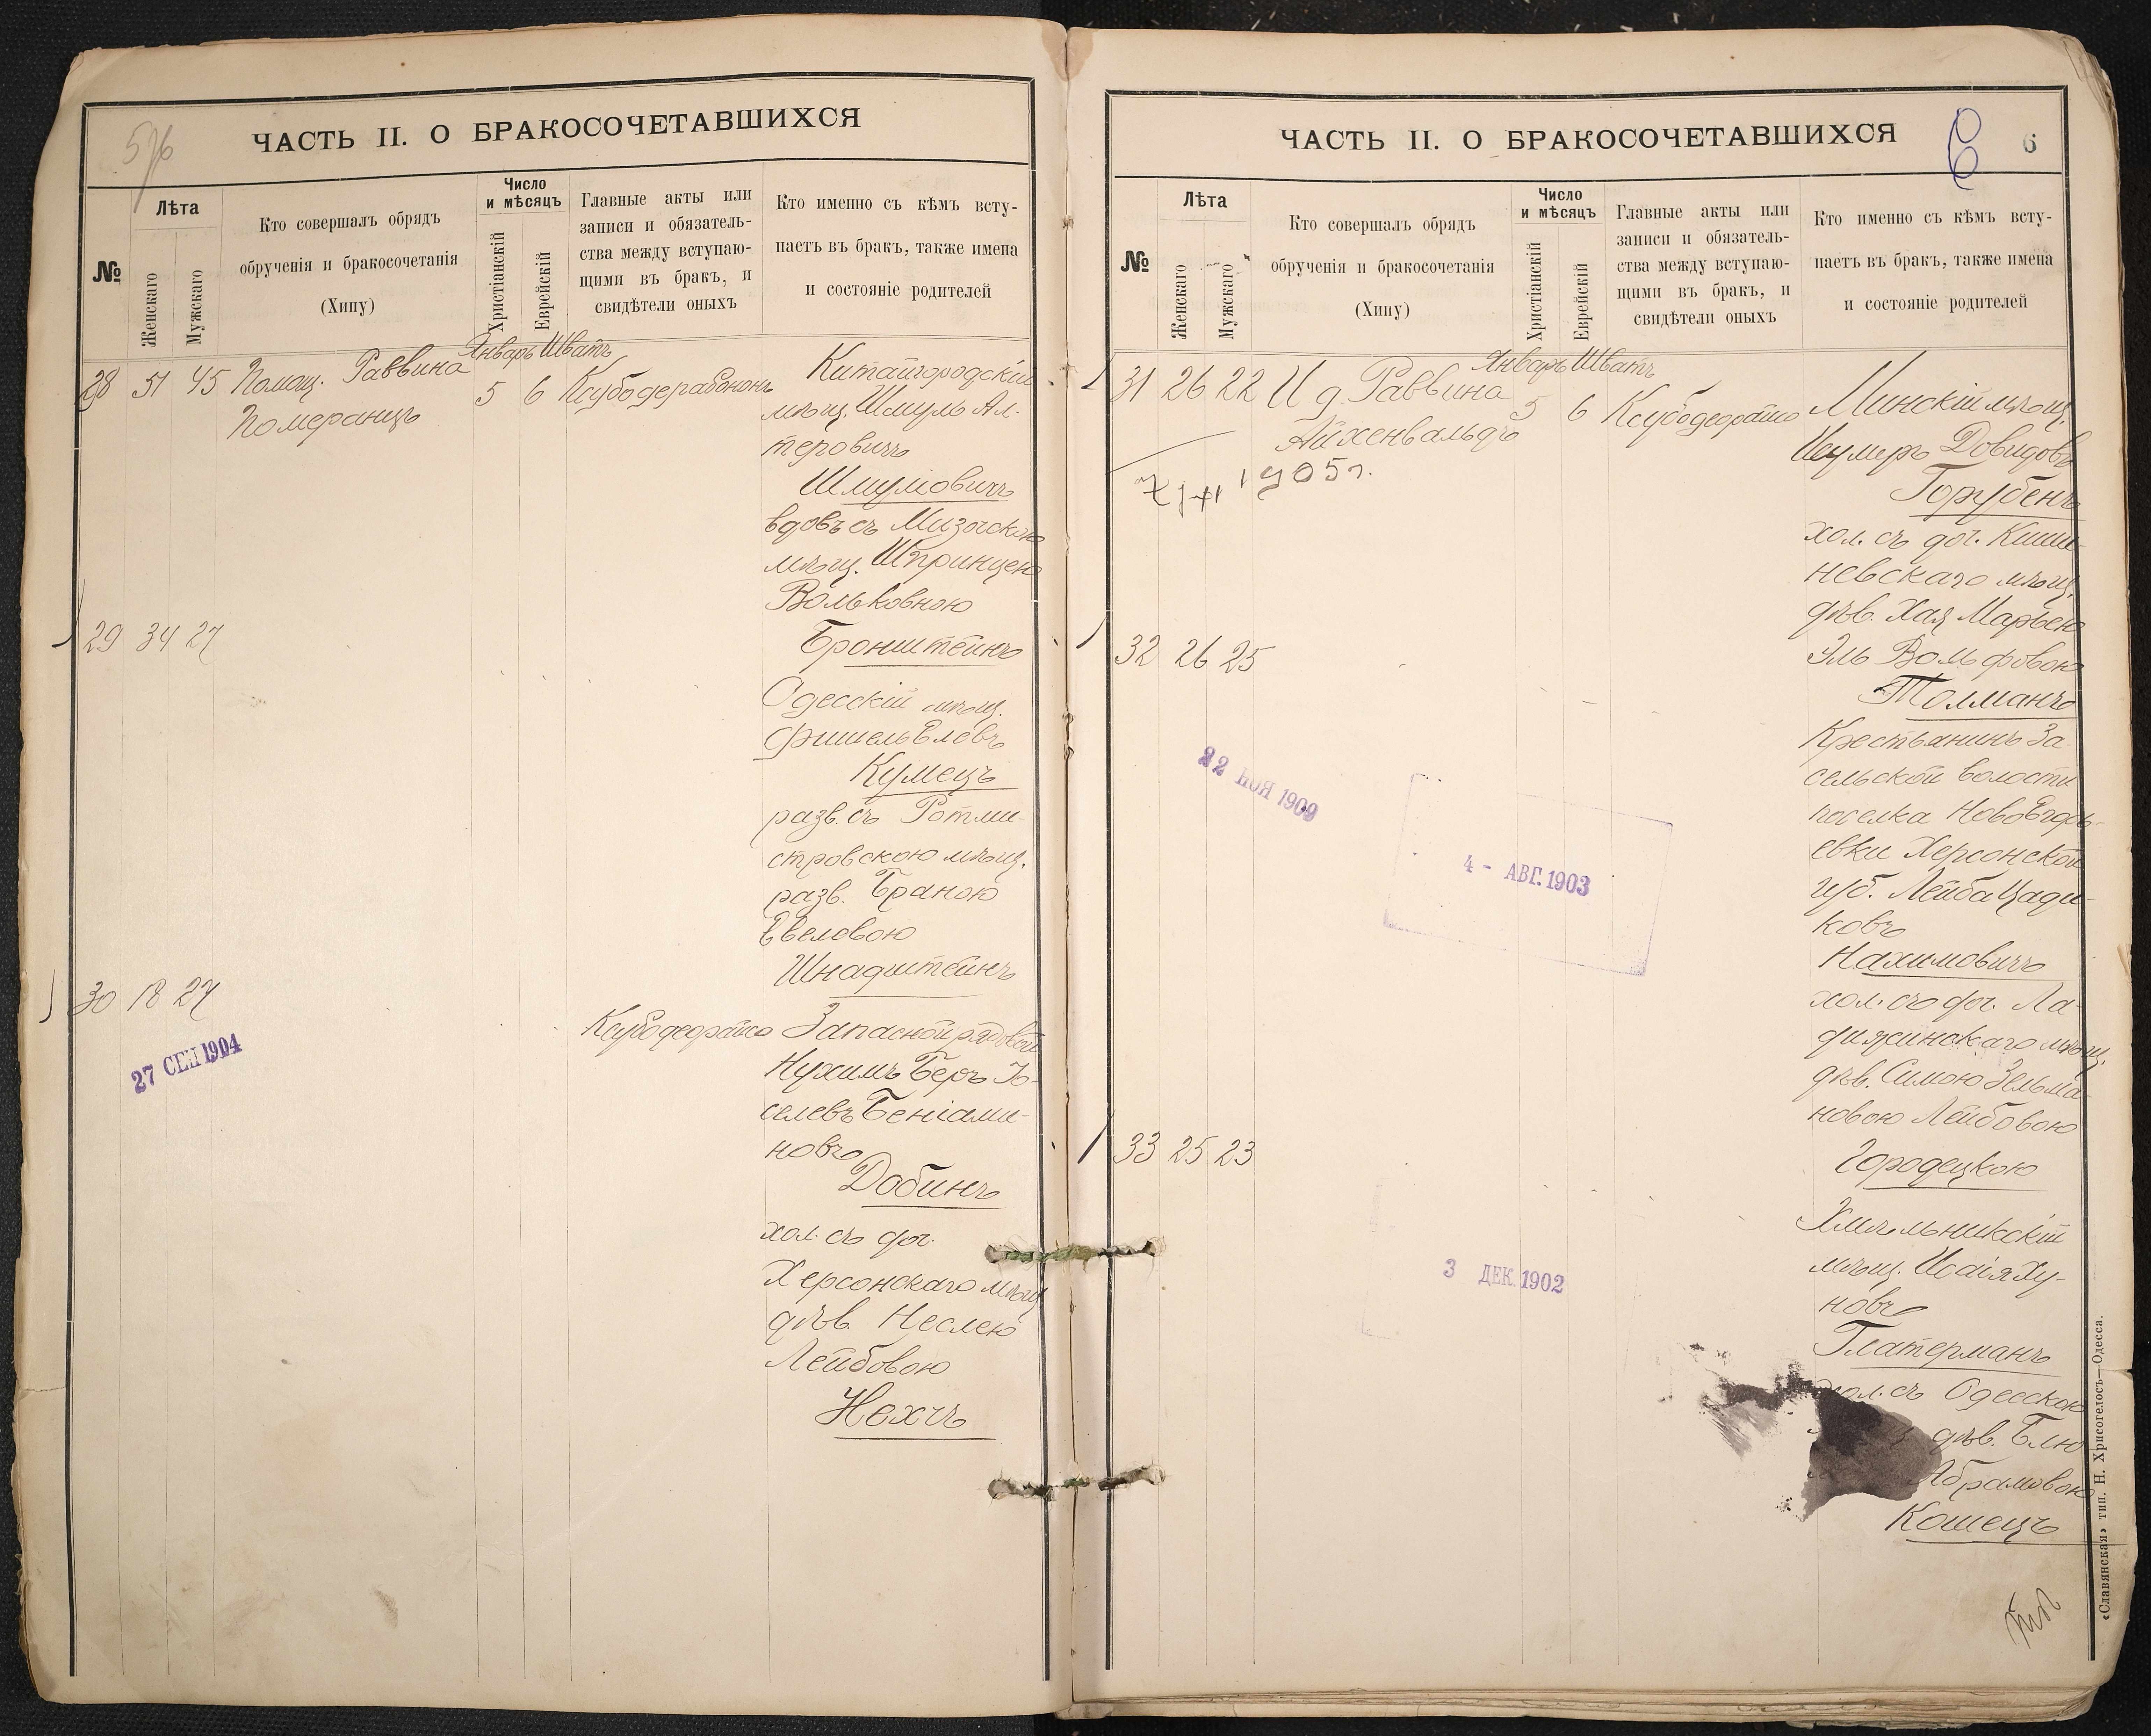 ЧАСТЬ II. О БРАКОСОЧЕТАВШИХСЯ
№
Лѣта
Женскаго
Мужскаго
Кто совершалъ обрядъ
обрученія и бракосочетанія
(Хипу)
Число
и мѣсяцъ
Христіанскій
Еврейскій
Главные акты или
записи и обязатель-
ства между вступаю-
щими въ бракъ, и
свидѣтели оныхъ
Кто именно съ кѣмъ всту-
паетъ въ бракъ, также имена
и состояніе родителей
Январь Шватъ
28 51 45 Помощ. Раввина
Померанцъ
5 6
Китайгородскій
мѣщ. Шмуль Ал-
теровичъ
Шмуловичъ
вдовъ съ Мизочскою
мѣщ. Шпринцею
Вольковною
Бронштейнъ
29 34 27
Одесскій мѣщ.
Фишель Еловъ
Кумецъ
разв. съ Ротми-
стровскою мѣщ.
разв. Браною
Евелевою
Шнадштейнъ
30 18 27
27 СЕН 1904
Ксубодеорайсо
Запасной рядовой
Нухимъ Беръ Іо-
селевъ Беніами-
новъ
Добинъ
хол. съ доч.
Херсонскаго мѣщ
дѣв. Неслею
Лейбовою
Нехчъ
ЧАСТЬ II. О БРАКОСОЧЕТАВШИХСЯ
6
№
Лѣта
Женскаго
Мужскаго
Кто совершалъ обрядъ
обрученія и бракосочетанія
(Хипу)
Число
и мѣсяцъ
Христіанскій
Еврейскій
Главные акты или
записи и обязатель-
ства между вступаю-
щими въ бракъ, и
свидѣтели оныхъ
Кто именно съ кѣмъ всту-
паетъ въ бракъ, также имена
и состояніе родителей
Январь Шватъ
31 26 22 И д. Раввина
Айхенвальдъ
5 6 Ксубодеорайсо
1905 г.
Минскій мѣщ.
Довидовъ
Горубенъ
хол. съ доч. Киши-
невскаго мѣщ.
дѣв. Хая Марьею
Эль Вольфовою
Толманъ
32 26 25
Крестьянинъ За-
сельской волости
поселка НовоЕгорь-
евки Херсонской
губ. Лейба Цади-
ковъ
Нахимовичъ
хол. съ доч. Ла-
дижинскаго мѣщ.
дѣв. Симою Зельма-
новою Лейбовою
Городецкою
22 НОЯ 1909
4 - АВГ. 1903
33 25 23
3 ДЕК. 1902
Хмѣльникскій
мѣщ. Исаія Ху-
новъ
Глатерманъ
хол. съ Одесскою
дѣв. Блю
Абрамовою
Кошецъ
«Славянская» тип. Н. Хрисогелосъ—Одесса.